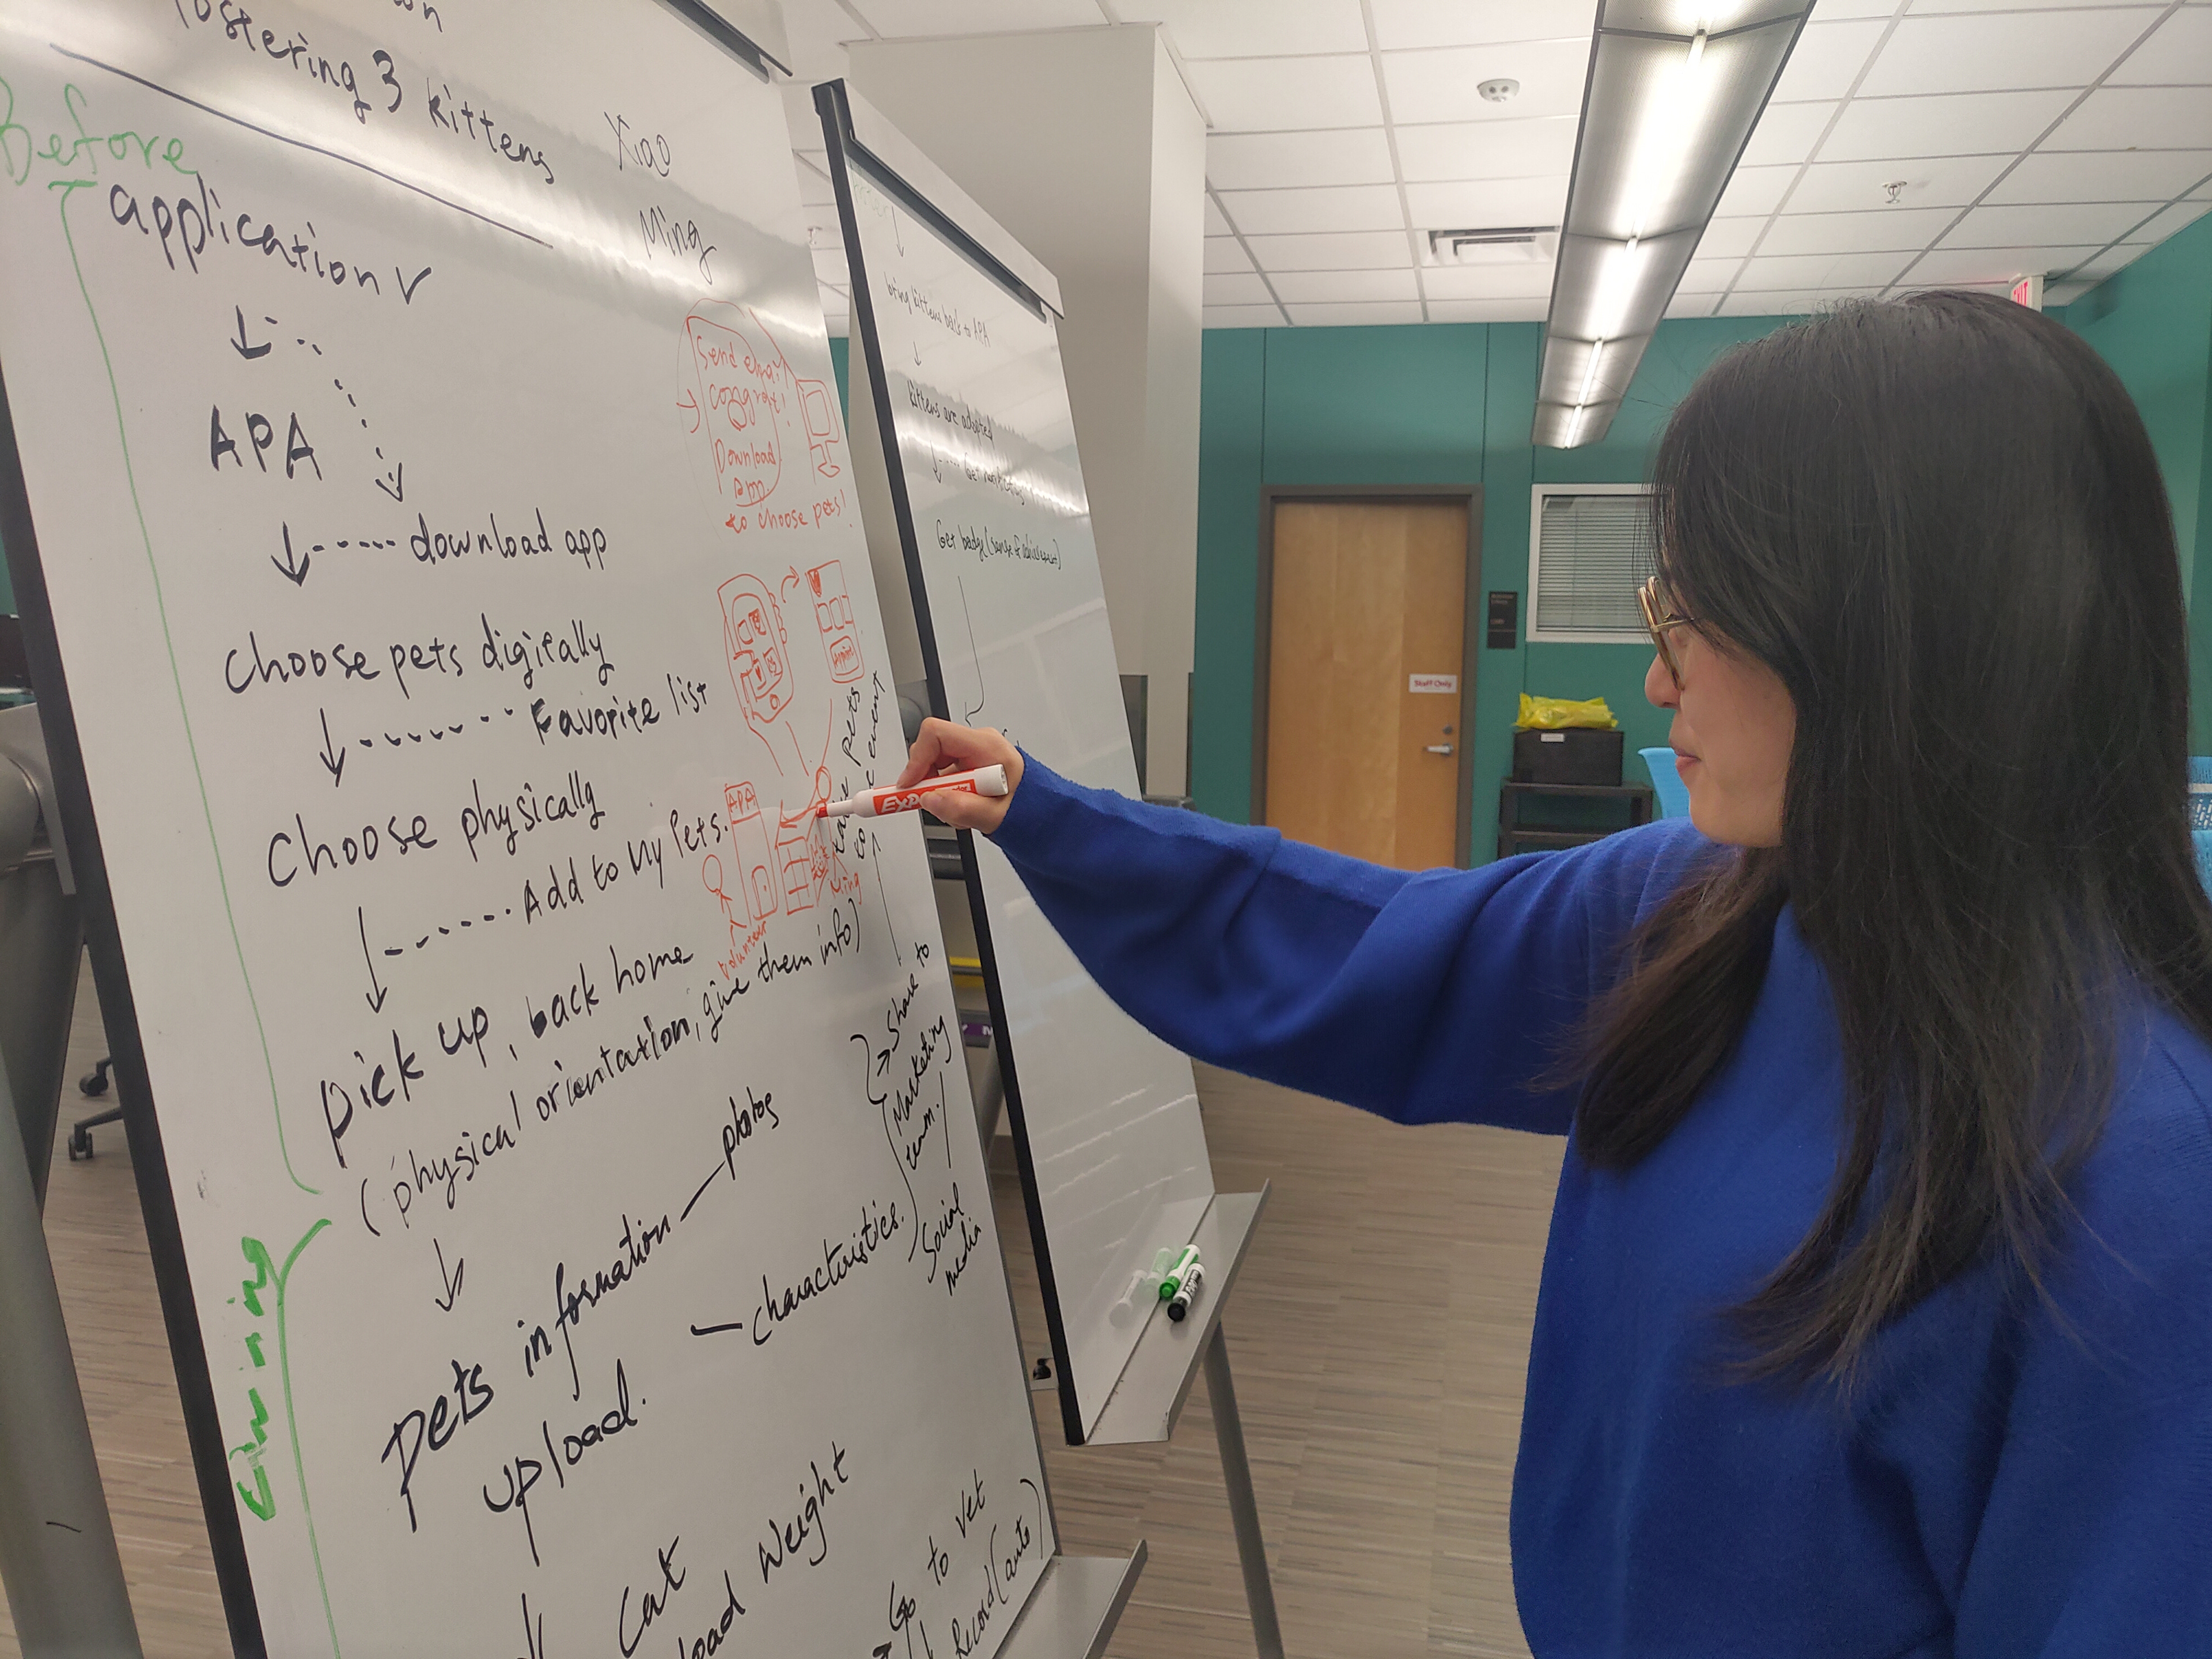 fostering 3 kittens
Xiao
Ming
Before
application ✓
APA
download app
choose pets digitally
Favorite list
Choose physically
Add to My Pets.
pick up, back home
(physical orientation, give them info)
During
pets information
photos
upload.
characteristics.
Share to
Marketing
team.
Social
media
Cat
Weight
Go to Vet
Record (auto)
Send email
congrat!
Download
app
to choose pets!
APA
volunteer
Ming
pets
event
bring kittens back to APA
kittens are adopted
Get badge (sense of achievement)
EXPO
Staff Only
EXIT